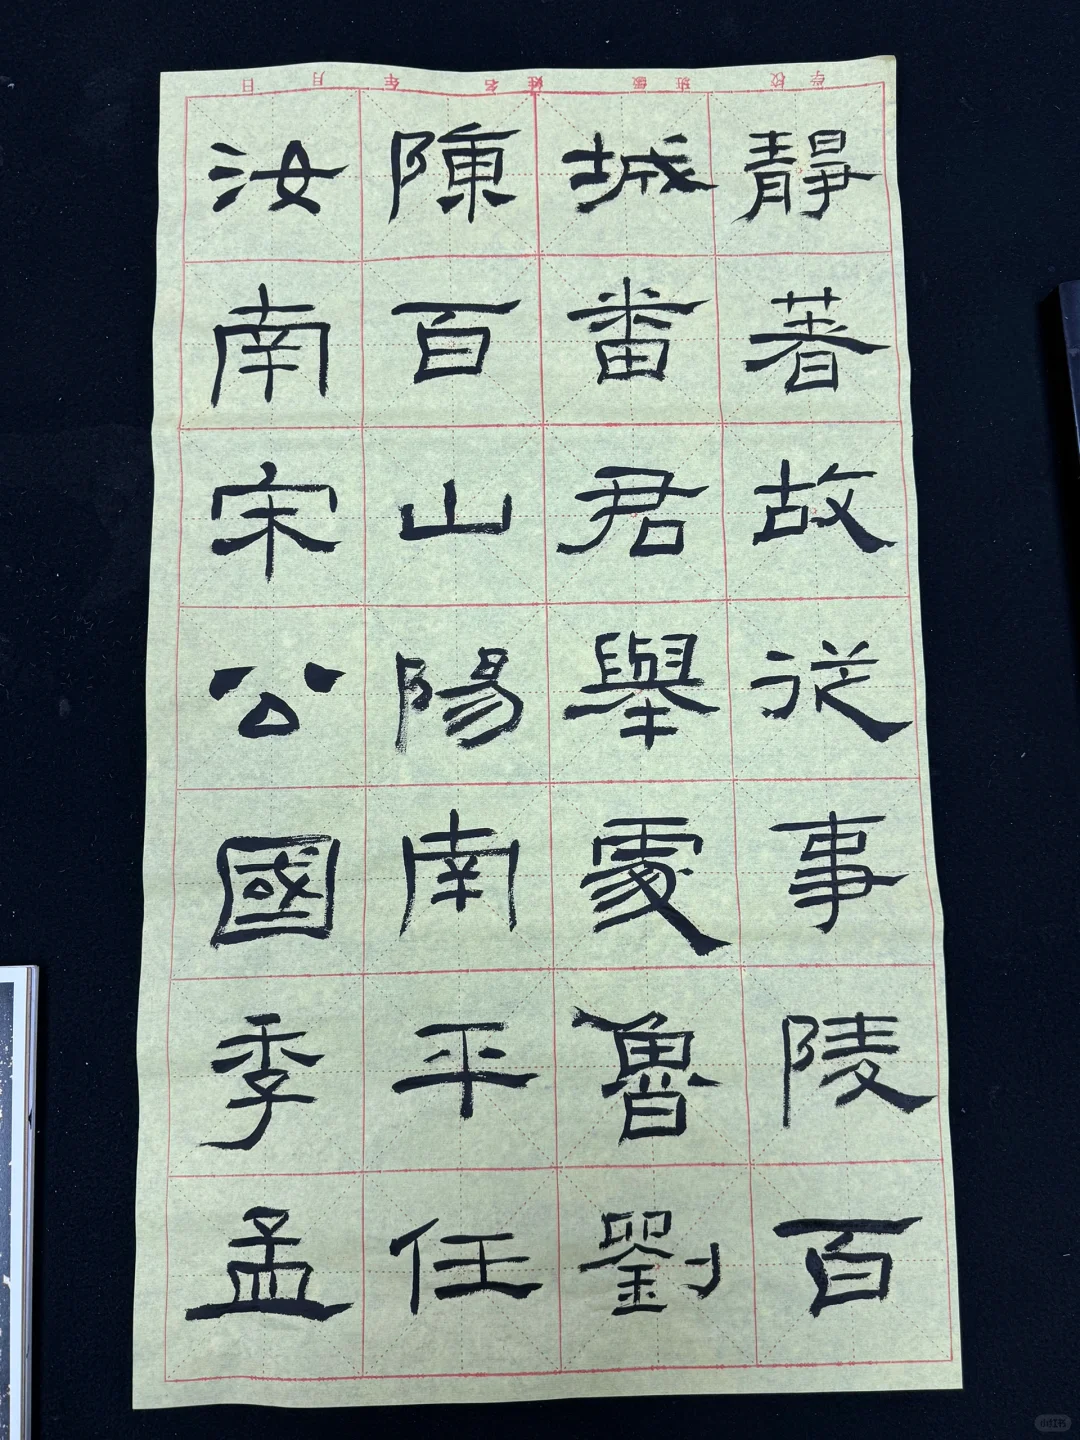 学校 班级 姓名 年 月 日
靜著故従事陵百
城番君舉處魯劉
陳百山陽南平任
汝南宋公國季孟
小红书